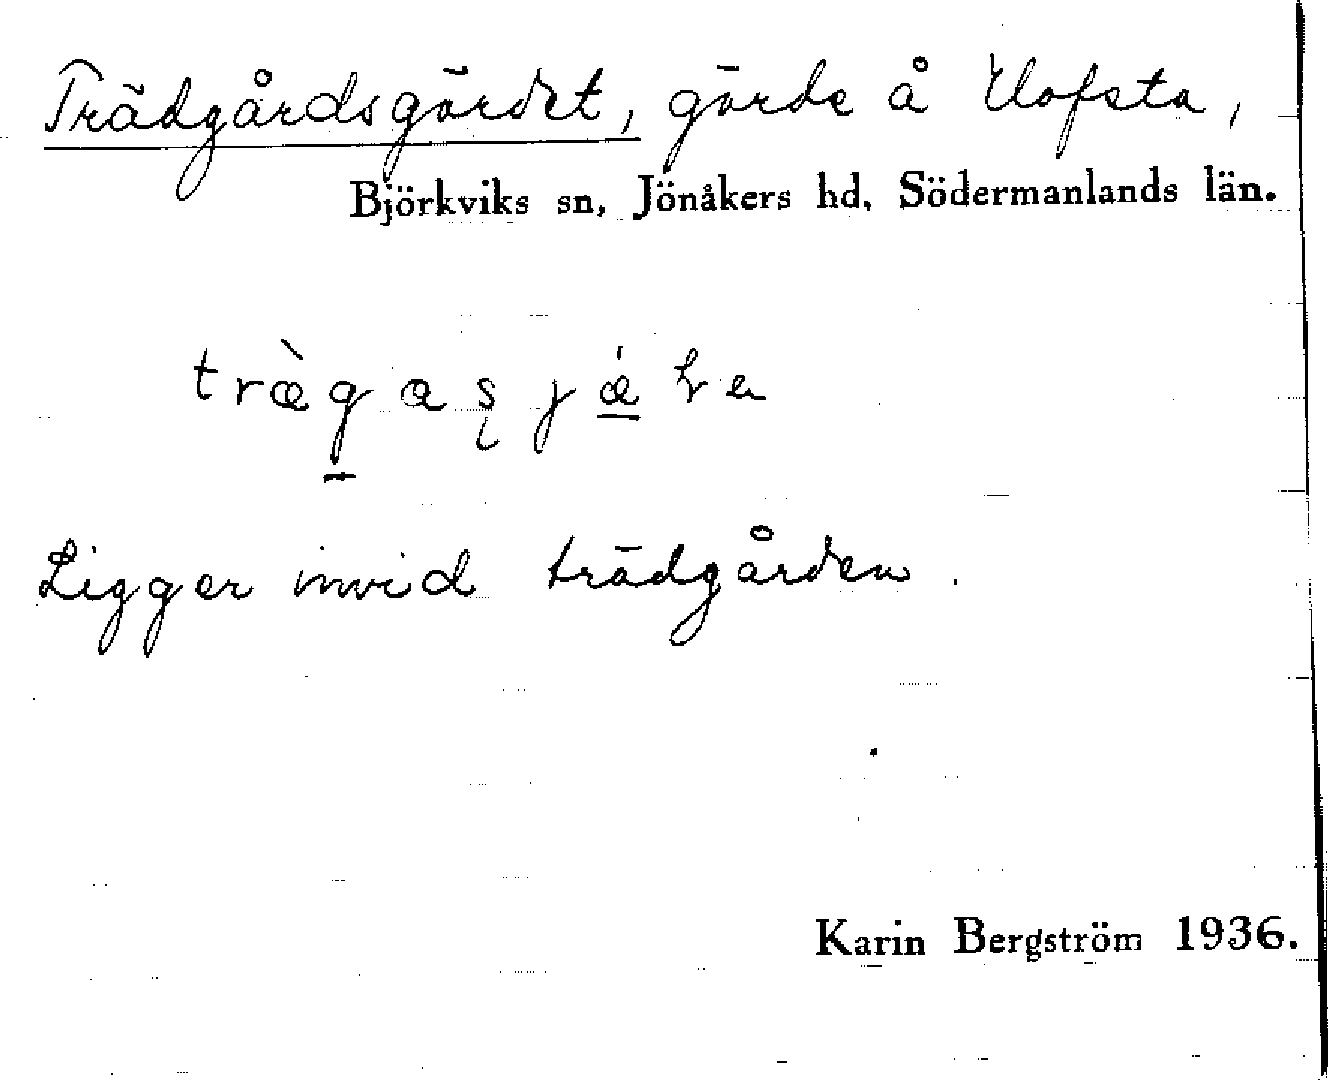 Trädgårdsgärdet, gärde å Ulofsta,
Björkviks sn, Jönåkers hd, Södermanlands län.
Ligger invid trädgården.
Karin Bergström 1936.